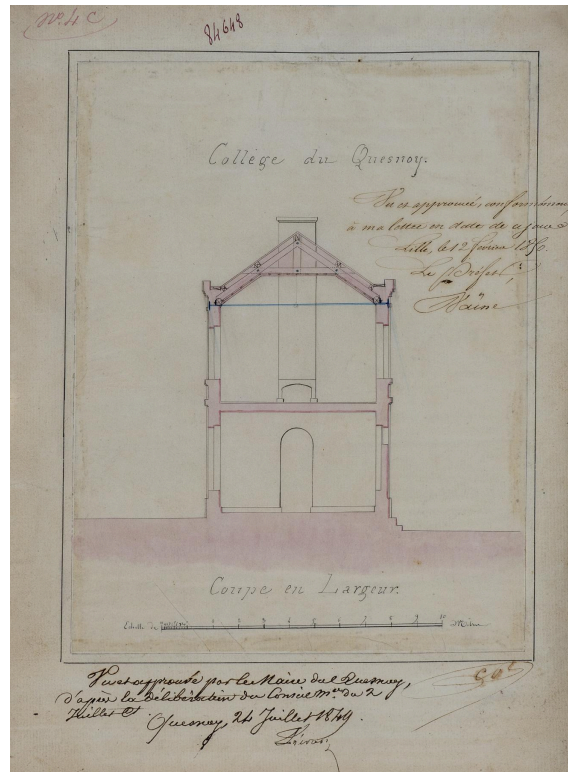 Nº 4 C
84648
Collège du Quesnoy.
Vu et approuvé, conformément
à ma lettre en date de ce jour
Lille, le 12 février 1850.
Le Préfet,
Coupe en Largeur.
Echelle de
1 2 3 4 5 6 7 8 9 10 Mètres
Vu et approuvé par le Maire du Quesnoy,
d'après la délibération du Conseil Mal du 2
Juillet
Quesnoy, 24 Juillet 1849.